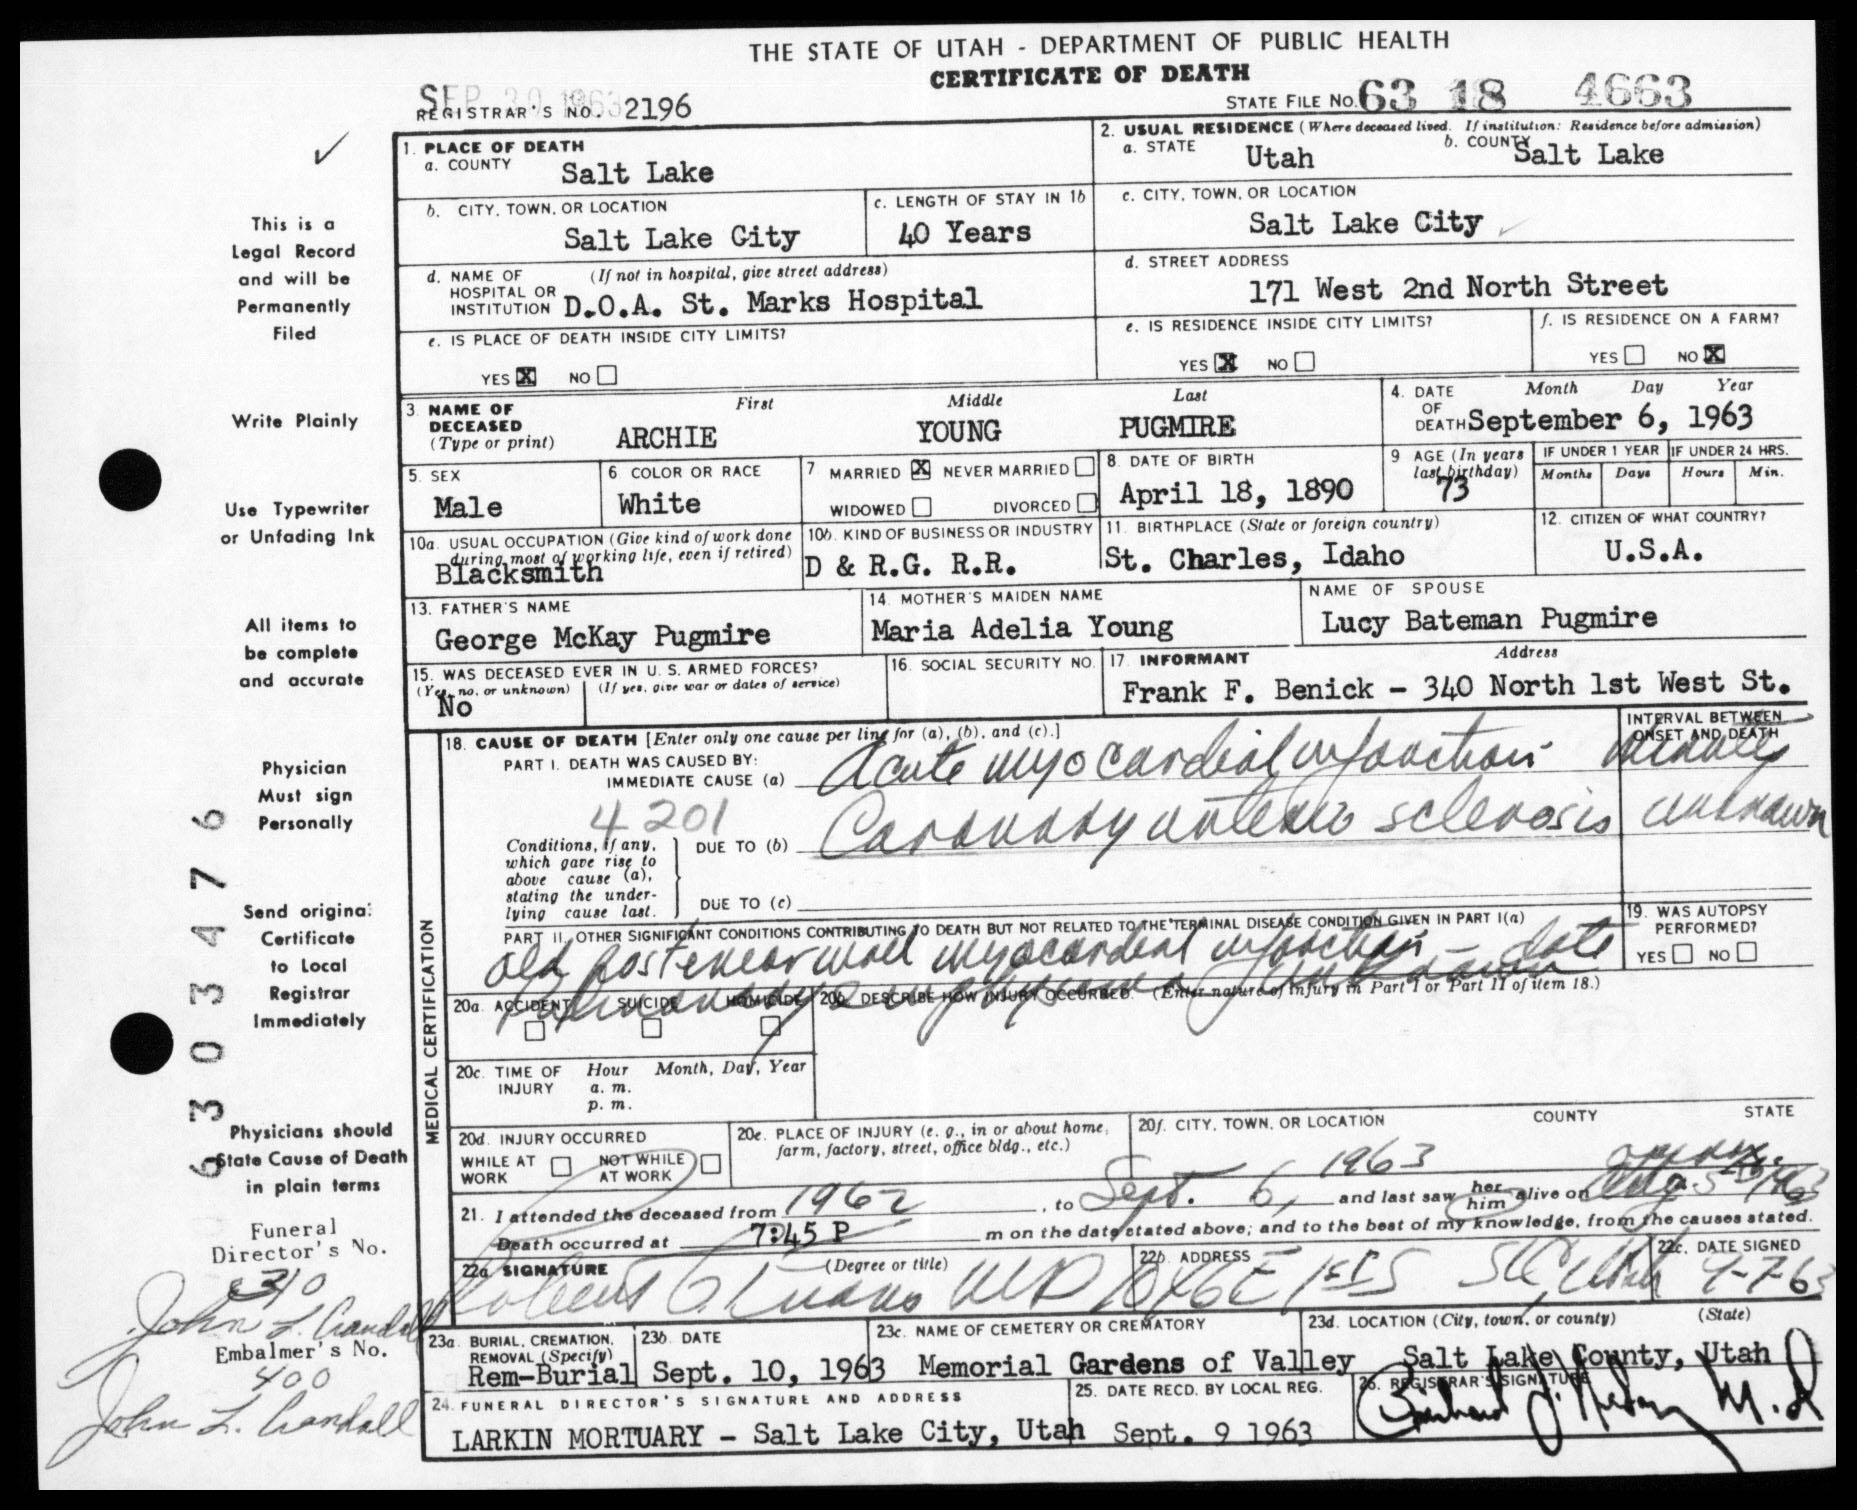 THE STATE OF UTAH - DEPARTMENT OF PUBLIC HEALTH
CERTIFICATE OF DEATH
SEP 30 1963
REGISTRAR'S NO. 2196
STATE FILE NO. 63 18 4663
This is a
Legal Record
and will be
Permanently
Filed
Write Plainly
Use Typewriter
or Unfading Ink
All items to
be complete
and accurate
Physician
Must sign
Personally
Send original
Certificate
to Local
Registrar
Immediately
Physicians should
State Cause of Death
in plain terms
Funeral
Director's No.
310
John L. Crandall
Embalmer's No.
400
John L. Crandall
6303476
1. PLACE OF DEATH
a. COUNTY
Salt Lake
2. USUAL RESIDENCE (Where deceased lived. If institution: Residence before admission)
a. STATE
Utah
b. COUNTY
Salt Lake
b. CITY, TOWN, OR LOCATION
Salt Lake City
c. LENGTH OF STAY IN 1b
40 Years
c. CITY, TOWN, OR LOCATION
Salt Lake City
d. NAME OF HOSPITAL OR INSTITUTION (If not in hospital, give street address)
D.O.A. St. Marks Hospital
d. STREET ADDRESS
171 West 2nd North Street
e. IS PLACE OF DEATH INSIDE CITY LIMITS?
YES X NO
e. IS RESIDENCE INSIDE CITY LIMITS?
YES X NO
f. IS RESIDENCE ON A FARM?
YES NO X
3. NAME OF DECEASED (Type or print)
First Middle Last
ARCHIE YOUNG PUGMIRE
4. DATE OF DEATH Month Day Year
September 6, 1963
5. SEX
Male
6 COLOR OR RACE
White
7 MARRIED X NEVER MARRIED
WIDOWED DIVORCED
8. DATE OF BIRTH
April 18, 1890
9 AGE (In years last birthday)
73
IF UNDER 1 YEAR
Months Days
IF UNDER 24 HRS.
Hours Min.
10a. USUAL OCCUPATION (Give kind of work done during most of working life, even if retired)
Blacksmith
10b. KIND OF BUSINESS OR INDUSTRY
D & R.G. R.R.
11. BIRTHPLACE (State or foreign country)
St. Charles, Idaho
12. CITIZEN OF WHAT COUNTRY?
U.S.A.
13. FATHER'S NAME
George McKay Pugmire
14. MOTHER'S MAIDEN NAME
Maria Adelia Young
NAME OF SPOUSE
Lucy Bateman Pugmire
15. WAS DECEASED EVER IN U. S. ARMED FORCES?
(Yes, no, or unknown) (If yes, give war or dates of service)
No
16. SOCIAL SECURITY NO.
17. INFORMANT Address
Frank F. Benick - 340 North 1st West St.
MEDICAL CERTIFICATION
18. CAUSE OF DEATH [Enter only one cause per line for (a), (b), and (c).]
INTERVAL BETWEEN ONSET AND DEATH
PART I. DEATH WAS CAUSED BY:
IMMEDIATE CAUSE (a) Acute myocardial infarction minutes
4201
Conditions, if any, which gave rise to above cause (a), stating the underlying cause last.
DUE TO (b) Coronary arterio sclerosis unknown
DUE TO (c)
PART II. OTHER SIGNIFICANT CONDITIONS CONTRIBUTING TO DEATH BUT NOT RELATED TO THE TERMINAL DISEASE CONDITION GIVEN IN PART I(a)
old posterior wall myocardial infarction - date
Pulmonary emphysema unknown
19. WAS AUTOPSY PERFORMED?
YES NO
20a. ACCIDENT SUICIDE HOMICIDE
20b. DESCRIBE HOW INJURY OCCURRED. (Enter nature of injury in Part I or Part II of item 18.)
20c. TIME OF INJURY Hour Month, Day, Year
a. m.
p. m.
20d. INJURY OCCURRED
WHILE AT WORK NOT WHILE AT WORK
20e. PLACE OF INJURY (e. g., in or about home, farm, factory, street, office bldg., etc.)
20f. CITY, TOWN, OR LOCATION COUNTY STATE
21. I attended the deceased from 1962, to Sept. 6, 1963 and last saw her him alive on approx. Aug. 5 1963
Death occurred at 7:45 P m on the date stated above; and to the best of my knowledge, from the causes stated.
22a. SIGNATURE (Degree or title)
Robert Evans MD
22b. ADDRESS
E 1st S SLC, Utah
22c. DATE SIGNED
9-7-63
23a. BURIAL, CREMATION, REMOVAL (Specify)
Rem-Burial
23b. DATE
Sept. 10, 1963
23c. NAME OF CEMETERY OR CREMATORY
Memorial Gardens of Valley
23d. LOCATION (City, town, or county) (State)
Salt Lake County, Utah
24. FUNERAL DIRECTOR'S SIGNATURE AND ADDRESS
LARKIN MORTUARY - Salt Lake City, Utah
25. DATE RECD. BY LOCAL REG.
Sept. 9 1963
26. REGISTRAR'S SIGNATURE
M.D